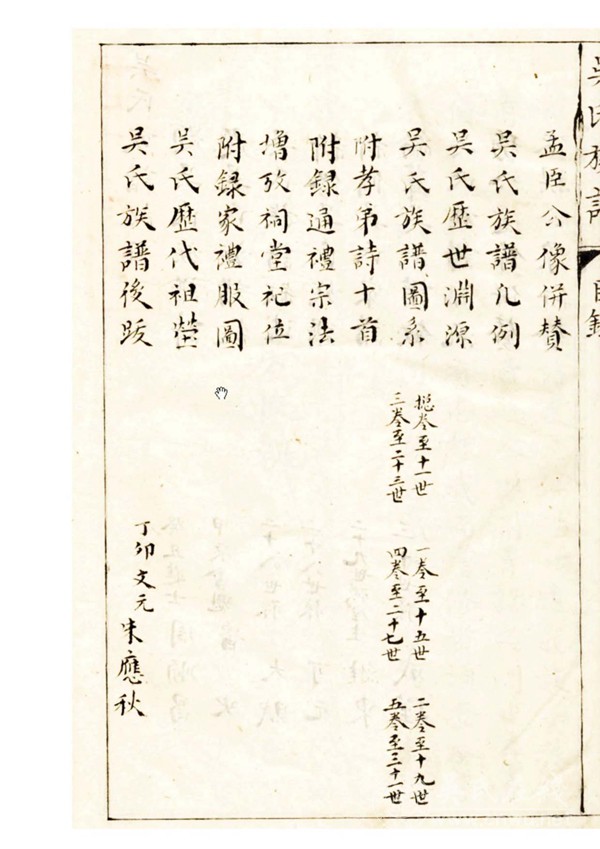 吳氏族譜 目錄
孟臣公像併贊
吳氏族譜凡例
吳氏歷世淵源
吳氏族譜圖系
總卷至十一世 一卷至十五世 二卷至十九世
三卷至二十三世 四卷至二十七世 五卷至三十一世
附孝弟詩十首
附錄通禮宗法
增攷祠堂祀位
附錄家禮服圖
吳氏歷代祖塋
吳氏族譜後跋
丁卯文元朱應秋